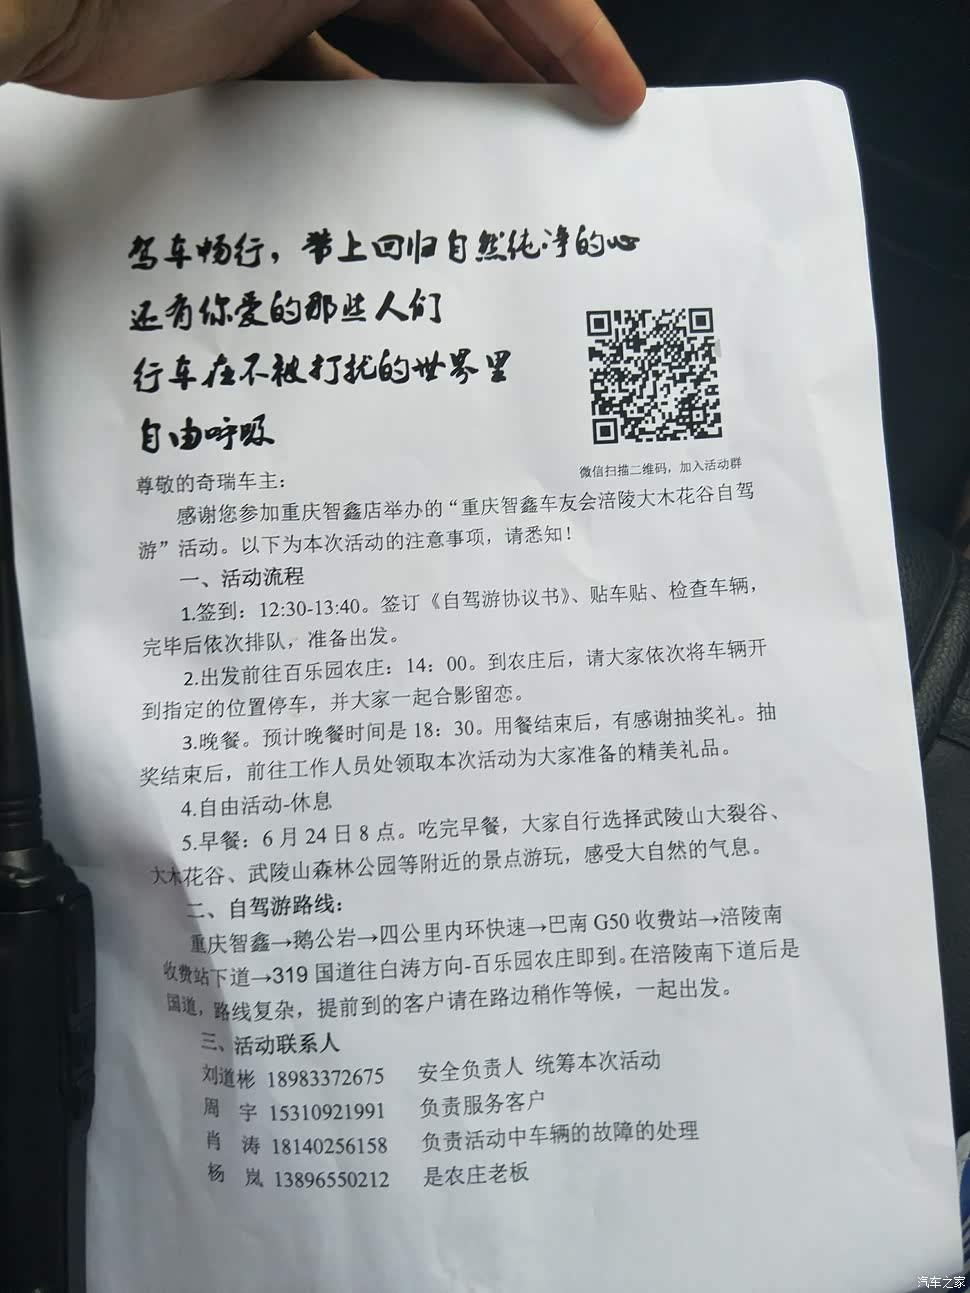 驾车畅行，带上回归自然纯净的心
还有你爱的那些人们
行车在不被打扰的世界里
自由呼吸
微信扫描二维码，加入活动群
尊敬的奇瑞车主：
感谢您参加重庆智鑫店举办的“重庆智鑫车友会涪陵大木花谷自驾
游”活动。以下为本次活动的注意事项，请悉知！
一、活动流程
1.签到：12:30-13:40。签订《自驾游协议书》、贴车贴、检查车辆，
完毕后依次排队，准备出发。
2.出发前往百乐园农庄：14：00。到农庄后，请大家依次将车辆开
到指定的位置停车，并大家一起合影留恋。
3.晚餐。预计晚餐时间是18：30。用餐结束后，有感谢抽奖礼。抽
奖结束后，前往工作人员处领取本次活动为大家准备的精美礼品。
4.自由活动-休息
5.早餐：6月24日8点。吃完早餐，大家自行选择武陵山大裂谷、
大木花谷、武陵山森林公园等附近的景点游玩，感受大自然的气息。
二、自驾游路线：
重庆智鑫→鹅公岩→四公里内环快速→巴南G50收费站→涪陵南
收费站下道→319国道往白涛方向-百乐园农庄即到。在涪陵南下道后是
国道，路线复杂，提前到的客户请在路边稍作等候，一起出发。
三、活动联系人
刘道彬 18983372675 安全负责人 统筹本次活动
周 宇 15310921991 负责服务客户
肖 涛 18140256158 负责活动中车辆的故障的处理
杨 岚 13896550212 是农庄老板
汽车之家